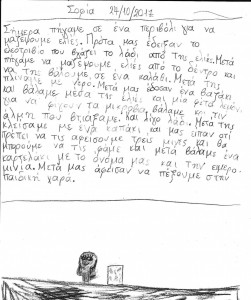 Σοφία 27/10/2017
Σήμερα πήγαμε σε ένα περιβόλι για να
μαζέψουμε ελιές. Πρώτα μας έδειξαν το
δέντριβιο που βγάζει το λάδι από της ελιές. Μετά
πήγαμε να μαζέψουμε ελιές από το δέντρο και
να της βάλουμε σε ένα καλάθι. Μετά της
νερό. Μετά μας έδοσαν ένα βαζάκι
και βάλαμε μέσα της ελιές και μία φέτα λεμόνι
για να φύγουν τα μικρόβια, βάλαμε και την
άλμη που φτιάξαμε. και λίγο λάδι. Μετά της
κλείσαμε με ένα καπάκι και μας είπαν ότι
πρέπει να τις αφείσουμε τρεις μήνες και θα
μπορούμε να τις φάμε και μετά βάλαμε ένα
καρτελάκι με το όνομα μας και την ημερο-
μινία. Μετά μας άφεισαν να πέξουμε στην
παιδική χαρά.